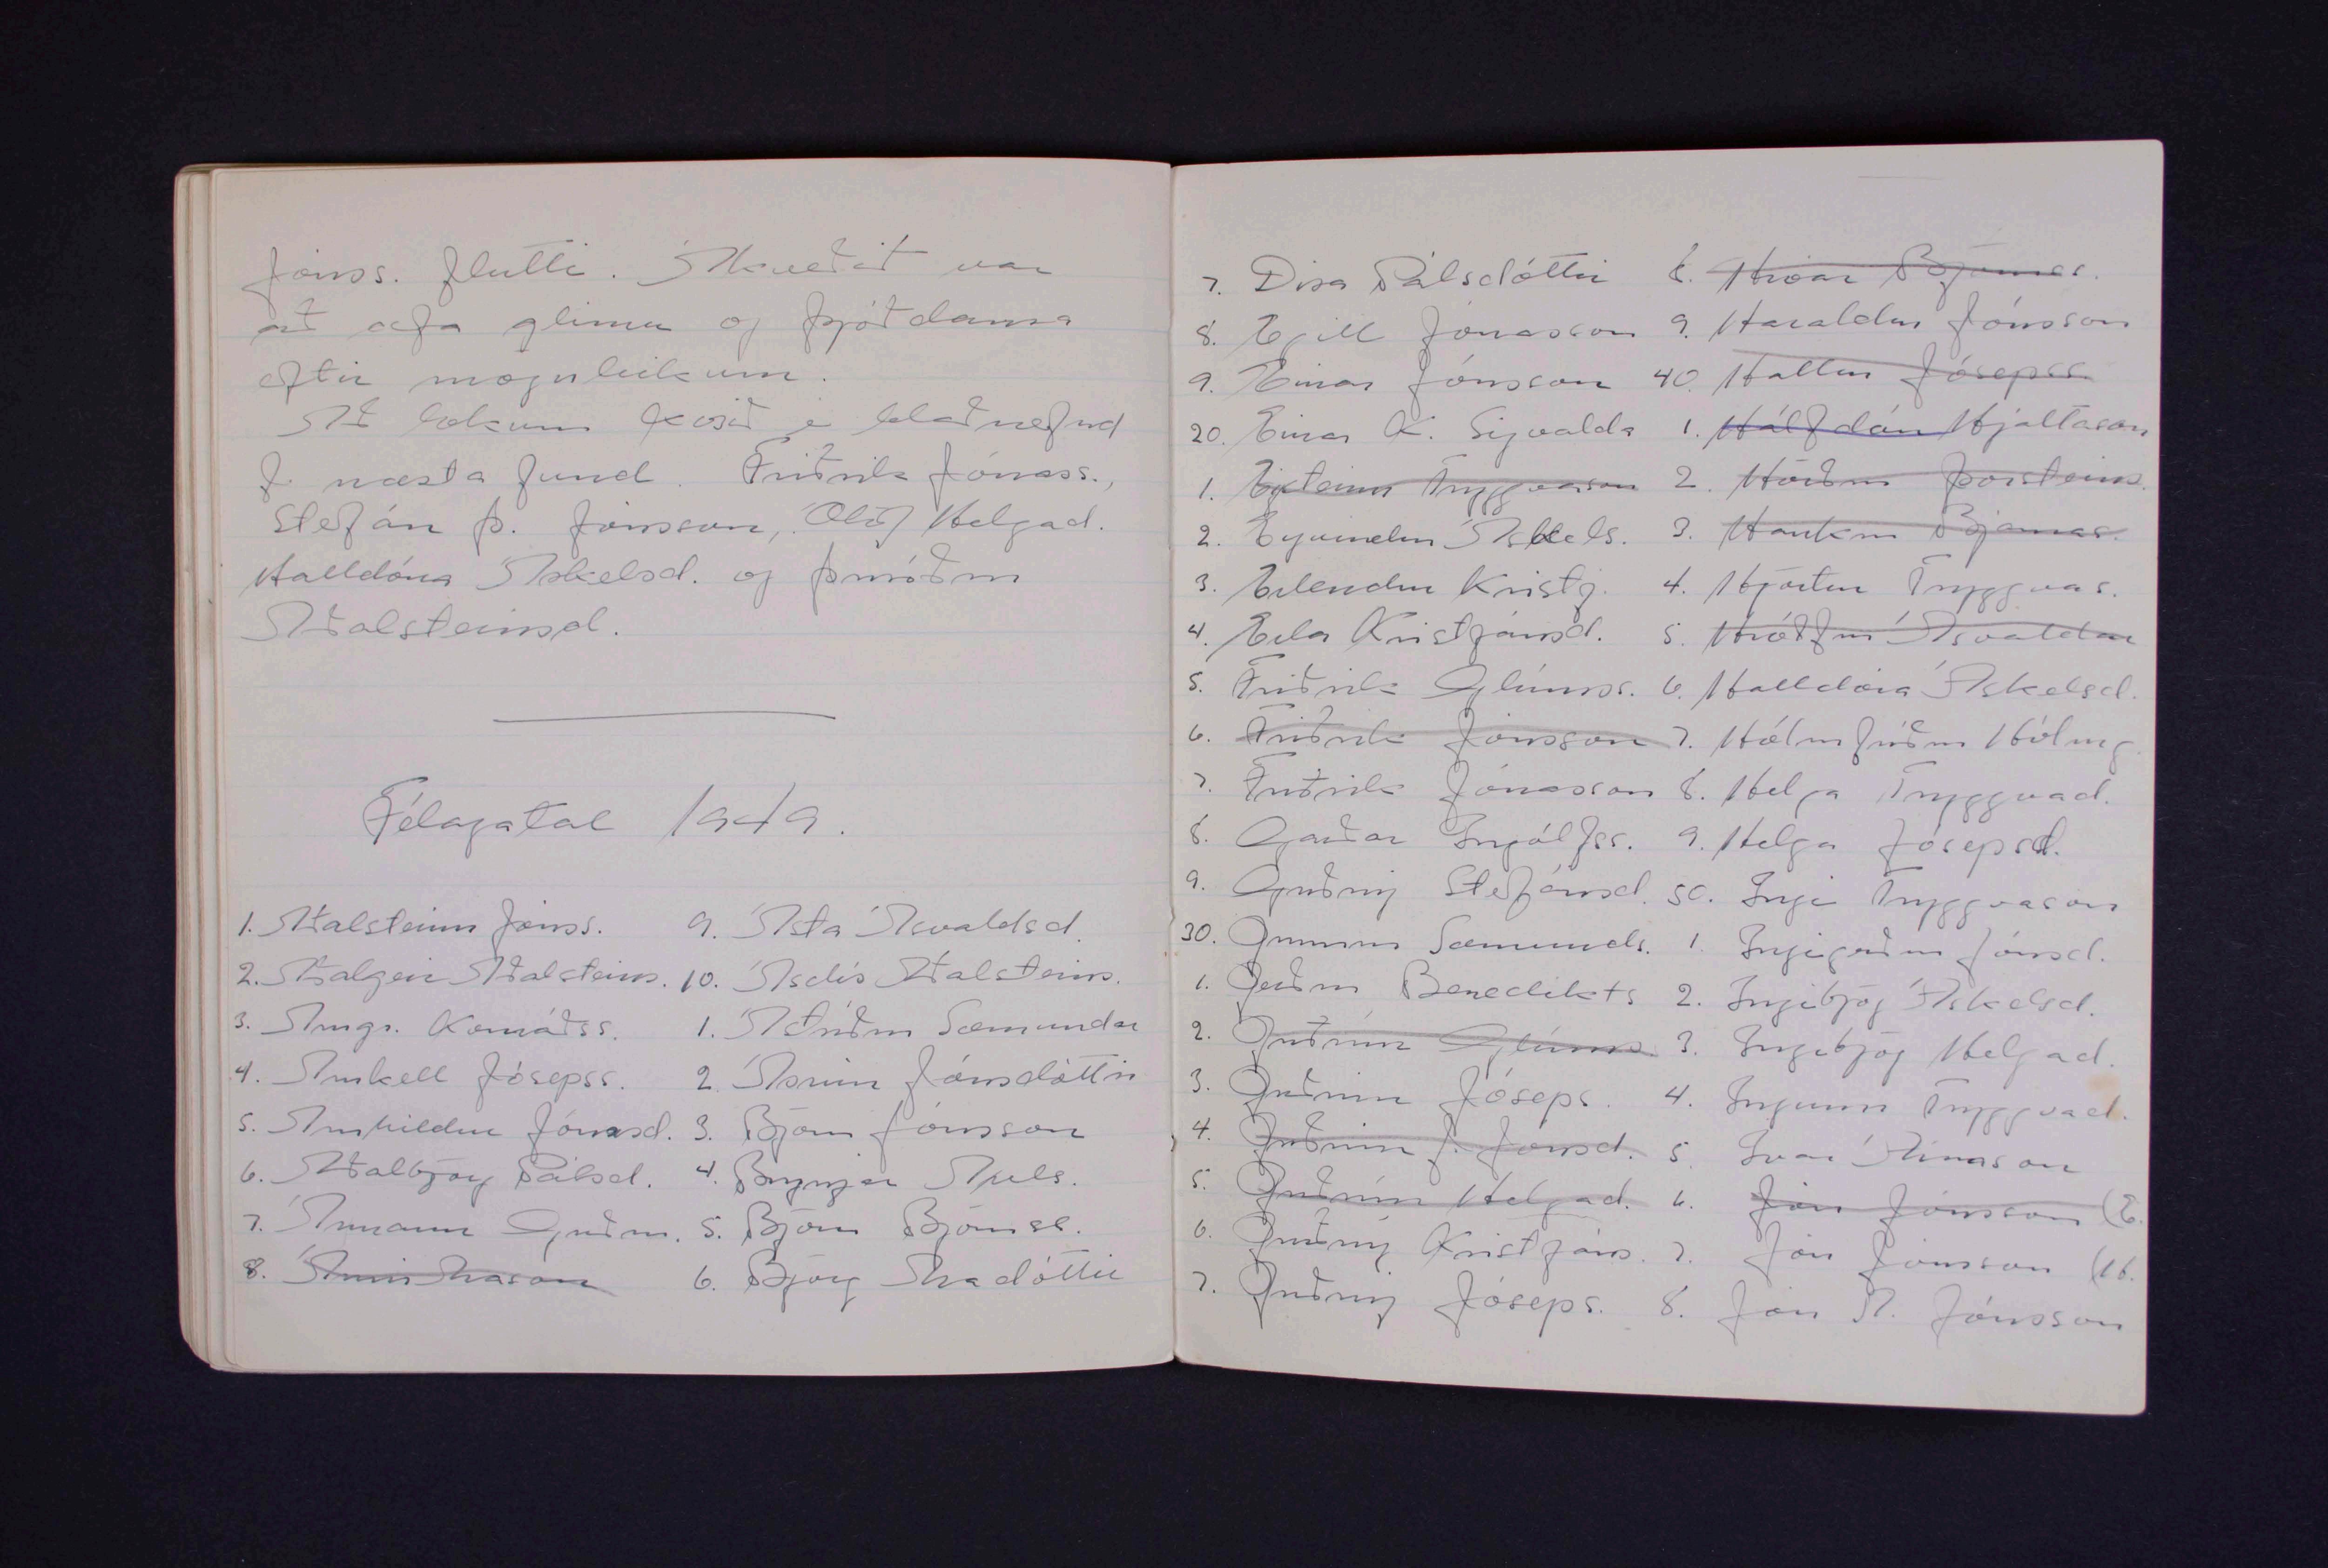 Jónss. flutti. Ákveðið var
að æfa glímu og þjóðdansa
eftir möguleikum.
Að lokum kosið í blaðnefnd
f. næsta fund. Friðrik Jónass.,
Stefán Þ. Jónsson, Ólöf Helgad.
Halldóra Áskelsd. og Þuríður
Aðalsteinsd.
Félagatal 1949.
1. Aðalsteinn Jónss.
2. Aðalgeir Aðalsteins.
3. Arngr. Konráðss.
4. Arnkell Jósepss.
5. Arnhildur Jónasd.
6. Aðalbjörg Pálsd.
7. Ármann Guðm.
8. Árni Arason
9. Ásta Ásvaldsd.
10. Ásdís Aðalsteins.
1. Ástríður Sæmundar
2. Ásrún Jónsdóttir
3. Björn Jónsson
4. Brynjar Axels.
5. Björn Björnss.
6. Björg Aradóttir
7. Dísa Pálsdóttir
8. Egill Jónasson
9. Einar Jónsson
20. Einar K. Sigvalda
1. Eysteinn Tryggvason
2. Eyvindur Áskels.
3. Erlendur Kristj.
4. Erla Kristjánsd.
5. Friðrik Glúmss.
6. Friðrik Jónsson
7. Friðrik Jónasson
8. Garðar Ingólfss.
9. Guðný Stefánsd.
30. Gunnar Sæmunds.
1. Benedikts
2. Guðrún Glúms.
3. Guðrún Jóseps.
4. Guðrún J. Jónsd.
5. Guðrún Helgad.
6. Guðný Kristjáns.
7. Guðný Jóseps.
8. Hróar Björnss.
9. Haraldur Jónsson
40. Hallur Jósepss.
1. Hálfdán Hjaltason
2. Hörður Þorsteins.
3. Haukur Bjarnas.
4. Hjörtur Tryggvas.
5. Ásvaldar
6. Halldóra Áskelsd.
7. Hólmfríður Hólmg
8. Helga Tryggvad.
9. Helga Jósepsd.
50. Ingi Tryggvason
1. Ingigerður Jónsd.
2. Ingibjög Áskelsd.
3. Ingibjög Helgad.
4. Ingunn Tryggvad.
5. Ívar Árnason
6. Jón Jónsson (E.
7. Jón Jónsson (H.
8. Jón A. Jónsson